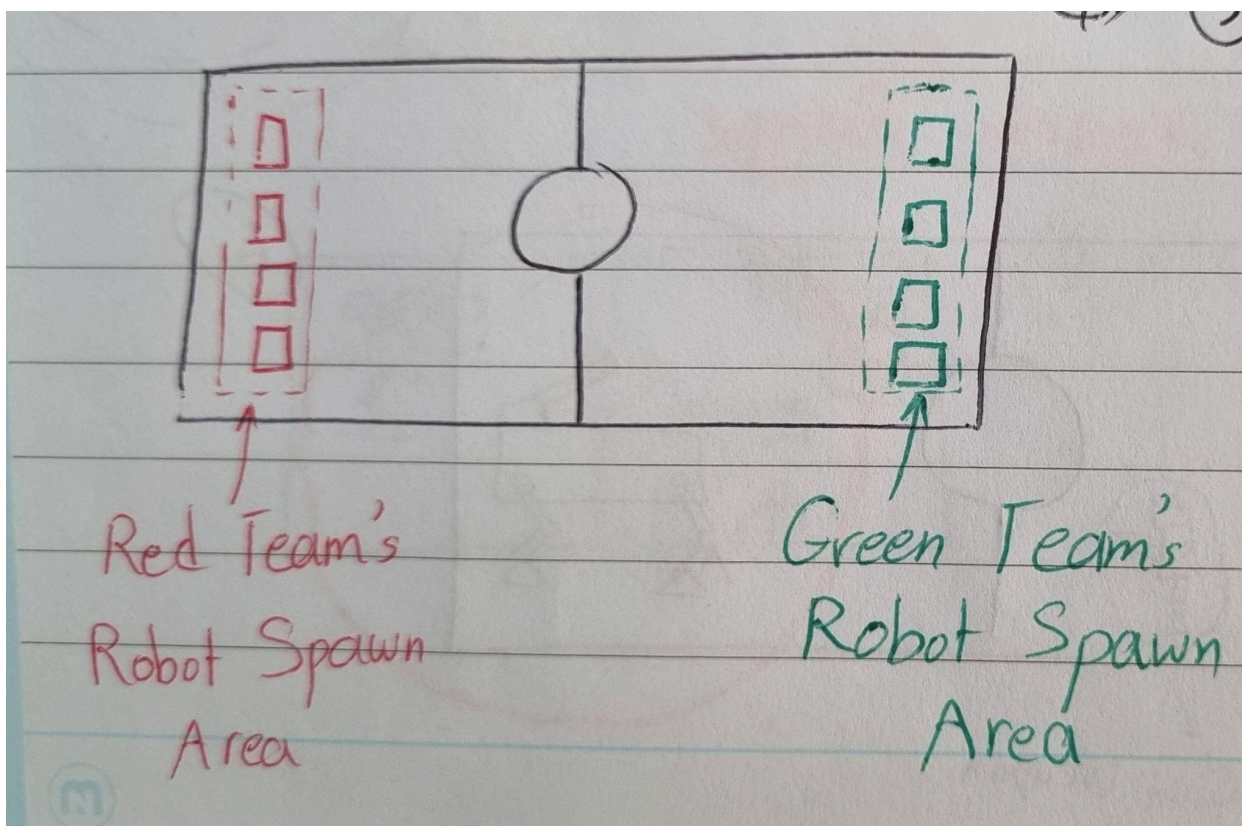 Red Team's
Robot Spawn
Area
Green Team's
Robot Spawn
Area